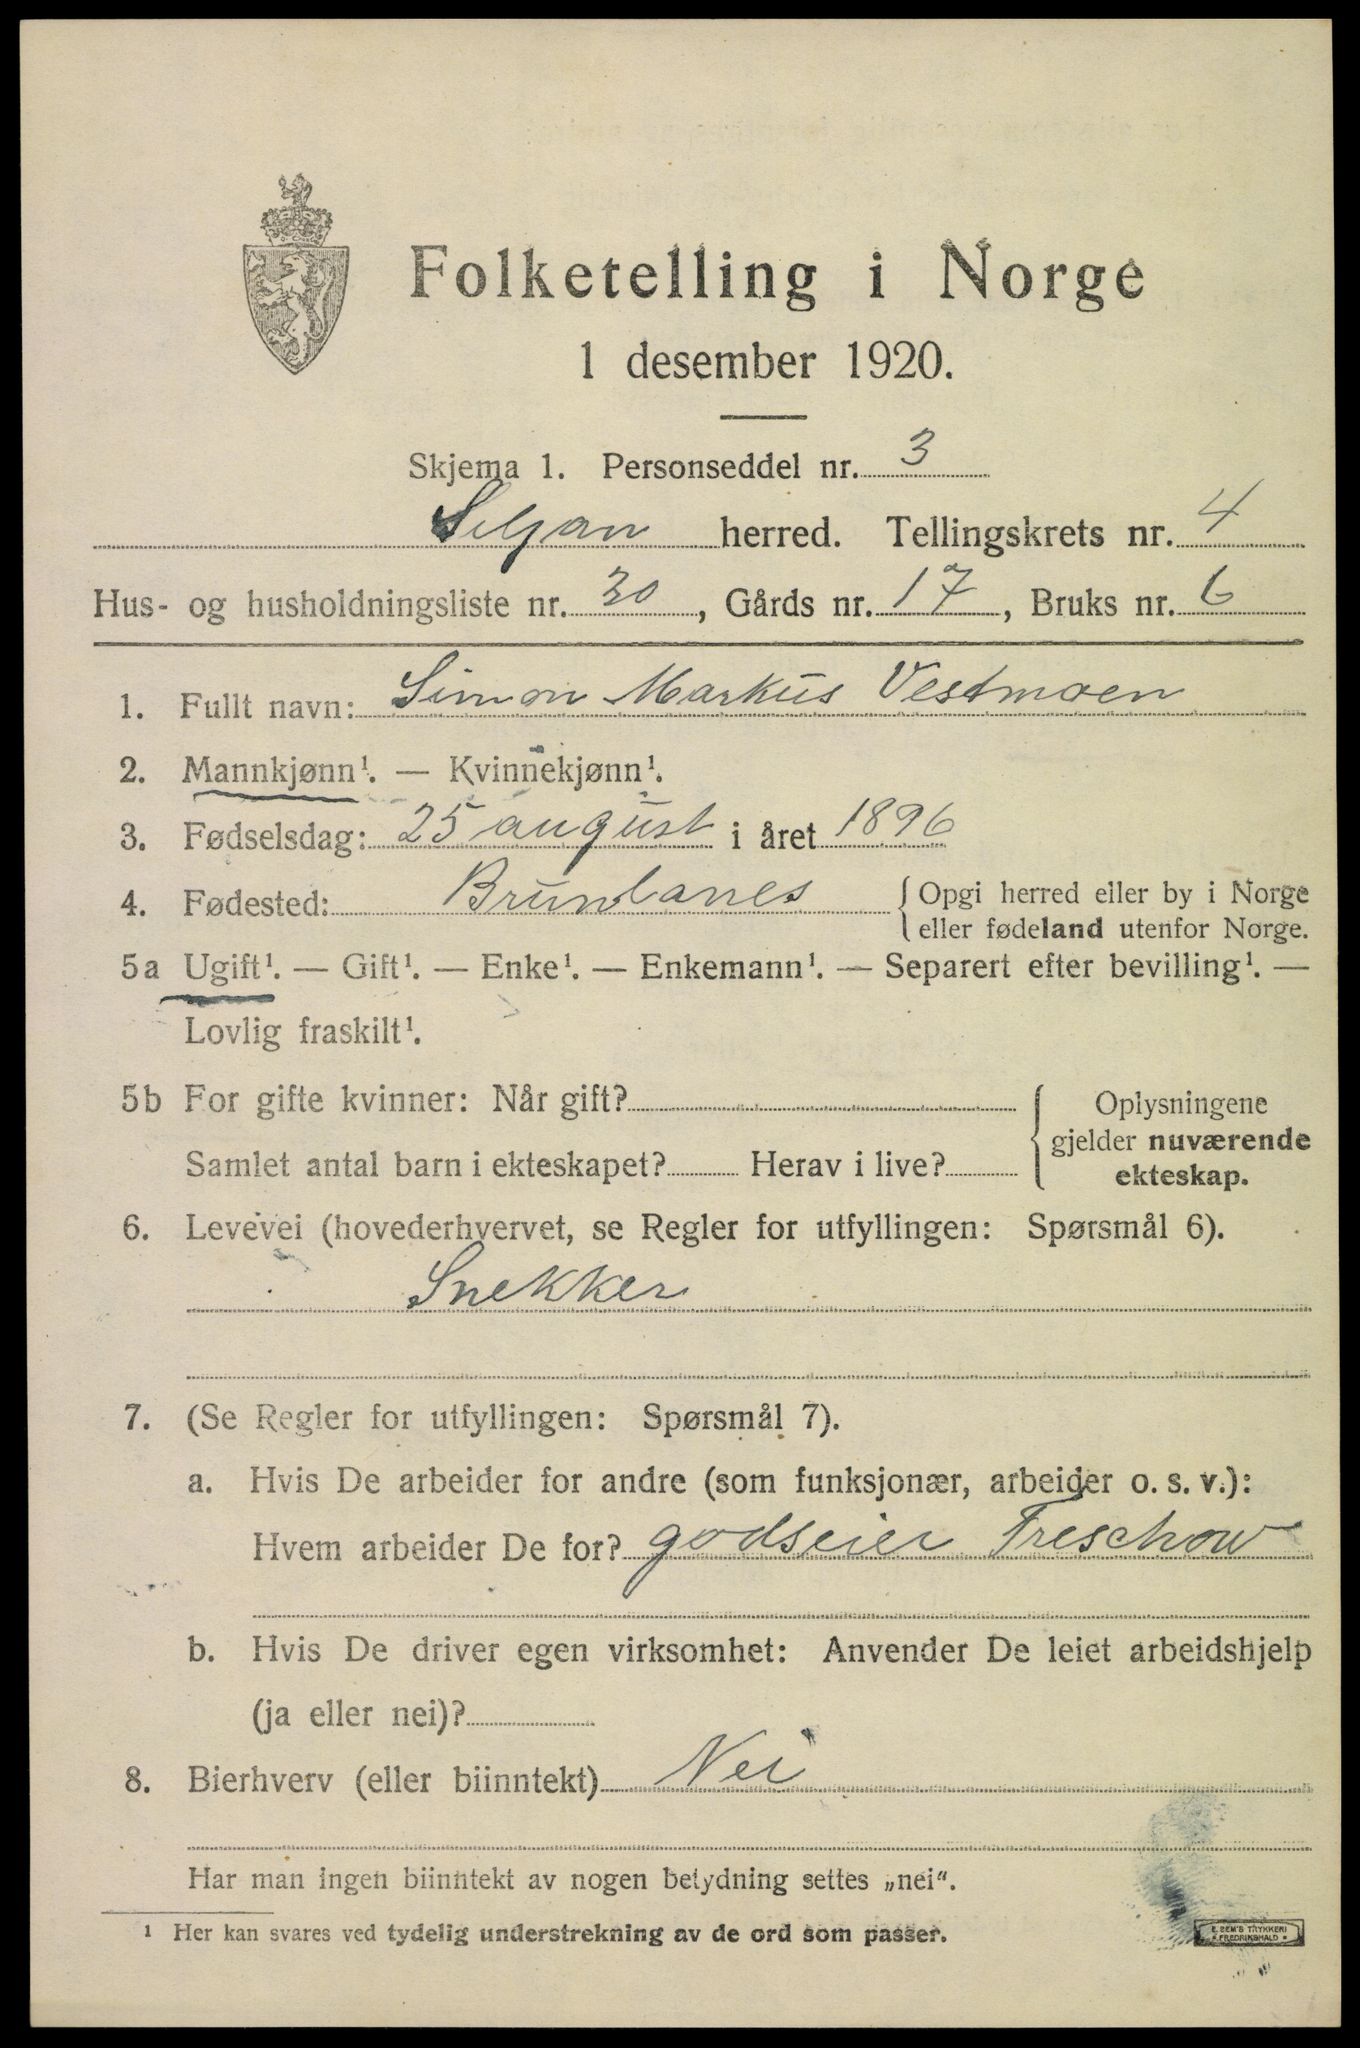 Folketelling i Norge
1 desember 1920.
Skjema 1. Personseddel nr. 3
Siljan herred. Tellingskrets nr. 4
Hus- og husholdningsliste nr. 30, Gårds nr. 17, Bruks nr. 6
1. Fullt navn: Simon Markus Vestmoen
2. Mannkjønn¹. — Kvinnekjønn¹.
3. Fødselsdag: 25 august i året 1896
4. Fødested: Brunlanes { Opgi herred eller by i Norge
eller fødeland utenfor Norge.
5a Ugift¹. — Gift¹. — Enke¹. — Enkemann¹. — Separert efter bevilling¹. —
Lovlig fraskilt¹.
5b For gifte kvinner: Når gift? { Oplysningene
gjelder nuværende
Samlet antal barn i ekteskapet? Herav i live? ekteskap.
6. Levevei (hovederhvervet, se Regler for utfyllingen: Spørsmål 6).
Snekker
7. (Se Regler for utfyllingen: Spørsmål 7).
a. Hvis De arbeider for andre (som funksjonær, arbeider o. s. v.):
Hvem arbeider De for? godseier Treschow
b. Hvis De driver egen virksomhet: Anvender De leiet arbeidshjelp
(ja eller nei)?
8. Bierhverv (eller biinntekt) Nei
Har man ingen biinntekt av nogen betydning settes „nei".
¹ Her kan svares ved tydelig understrekning av de ord som passer.
E. SEM'S TRYKKERI
FREDRIKSHALD